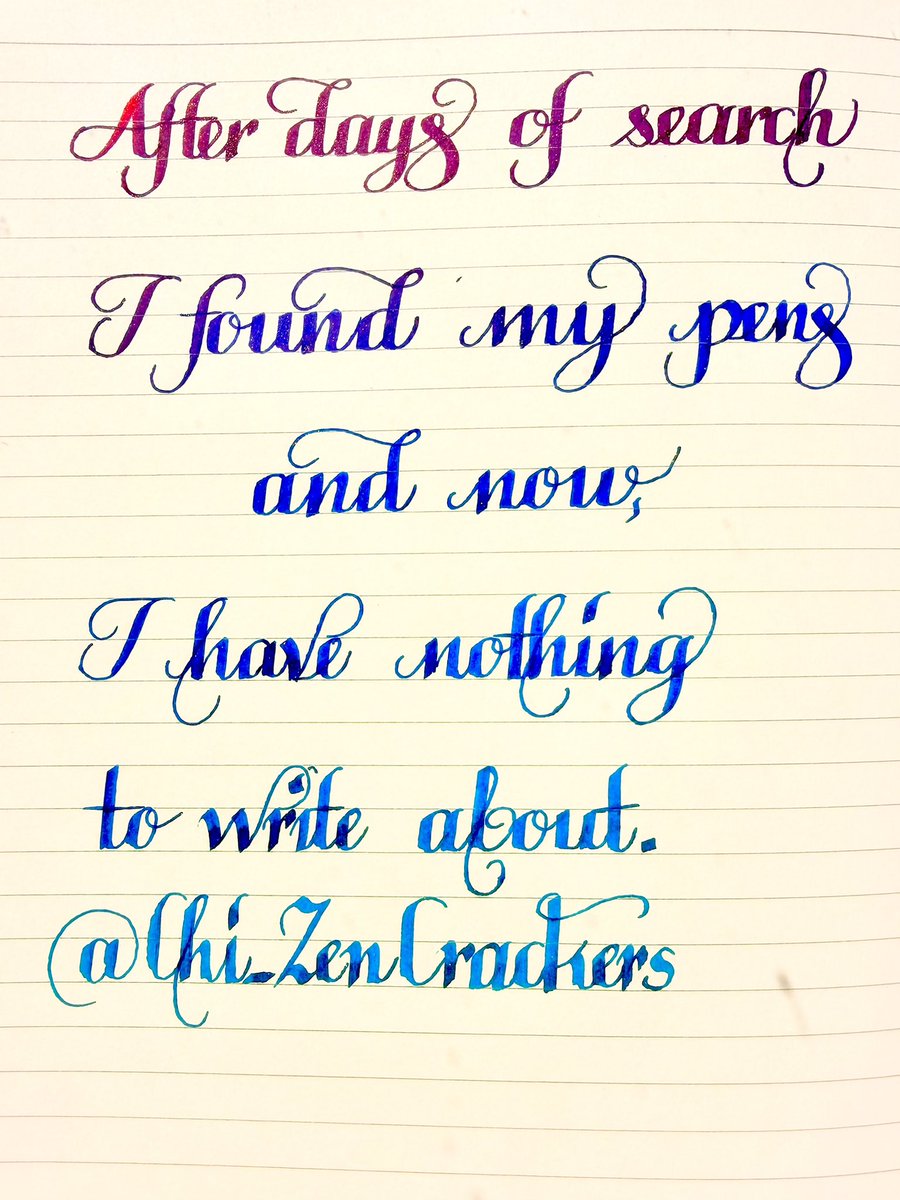 After days of search
I found my pens
and now,
I have nothing
to write about.
@Chi_ZenCrackers